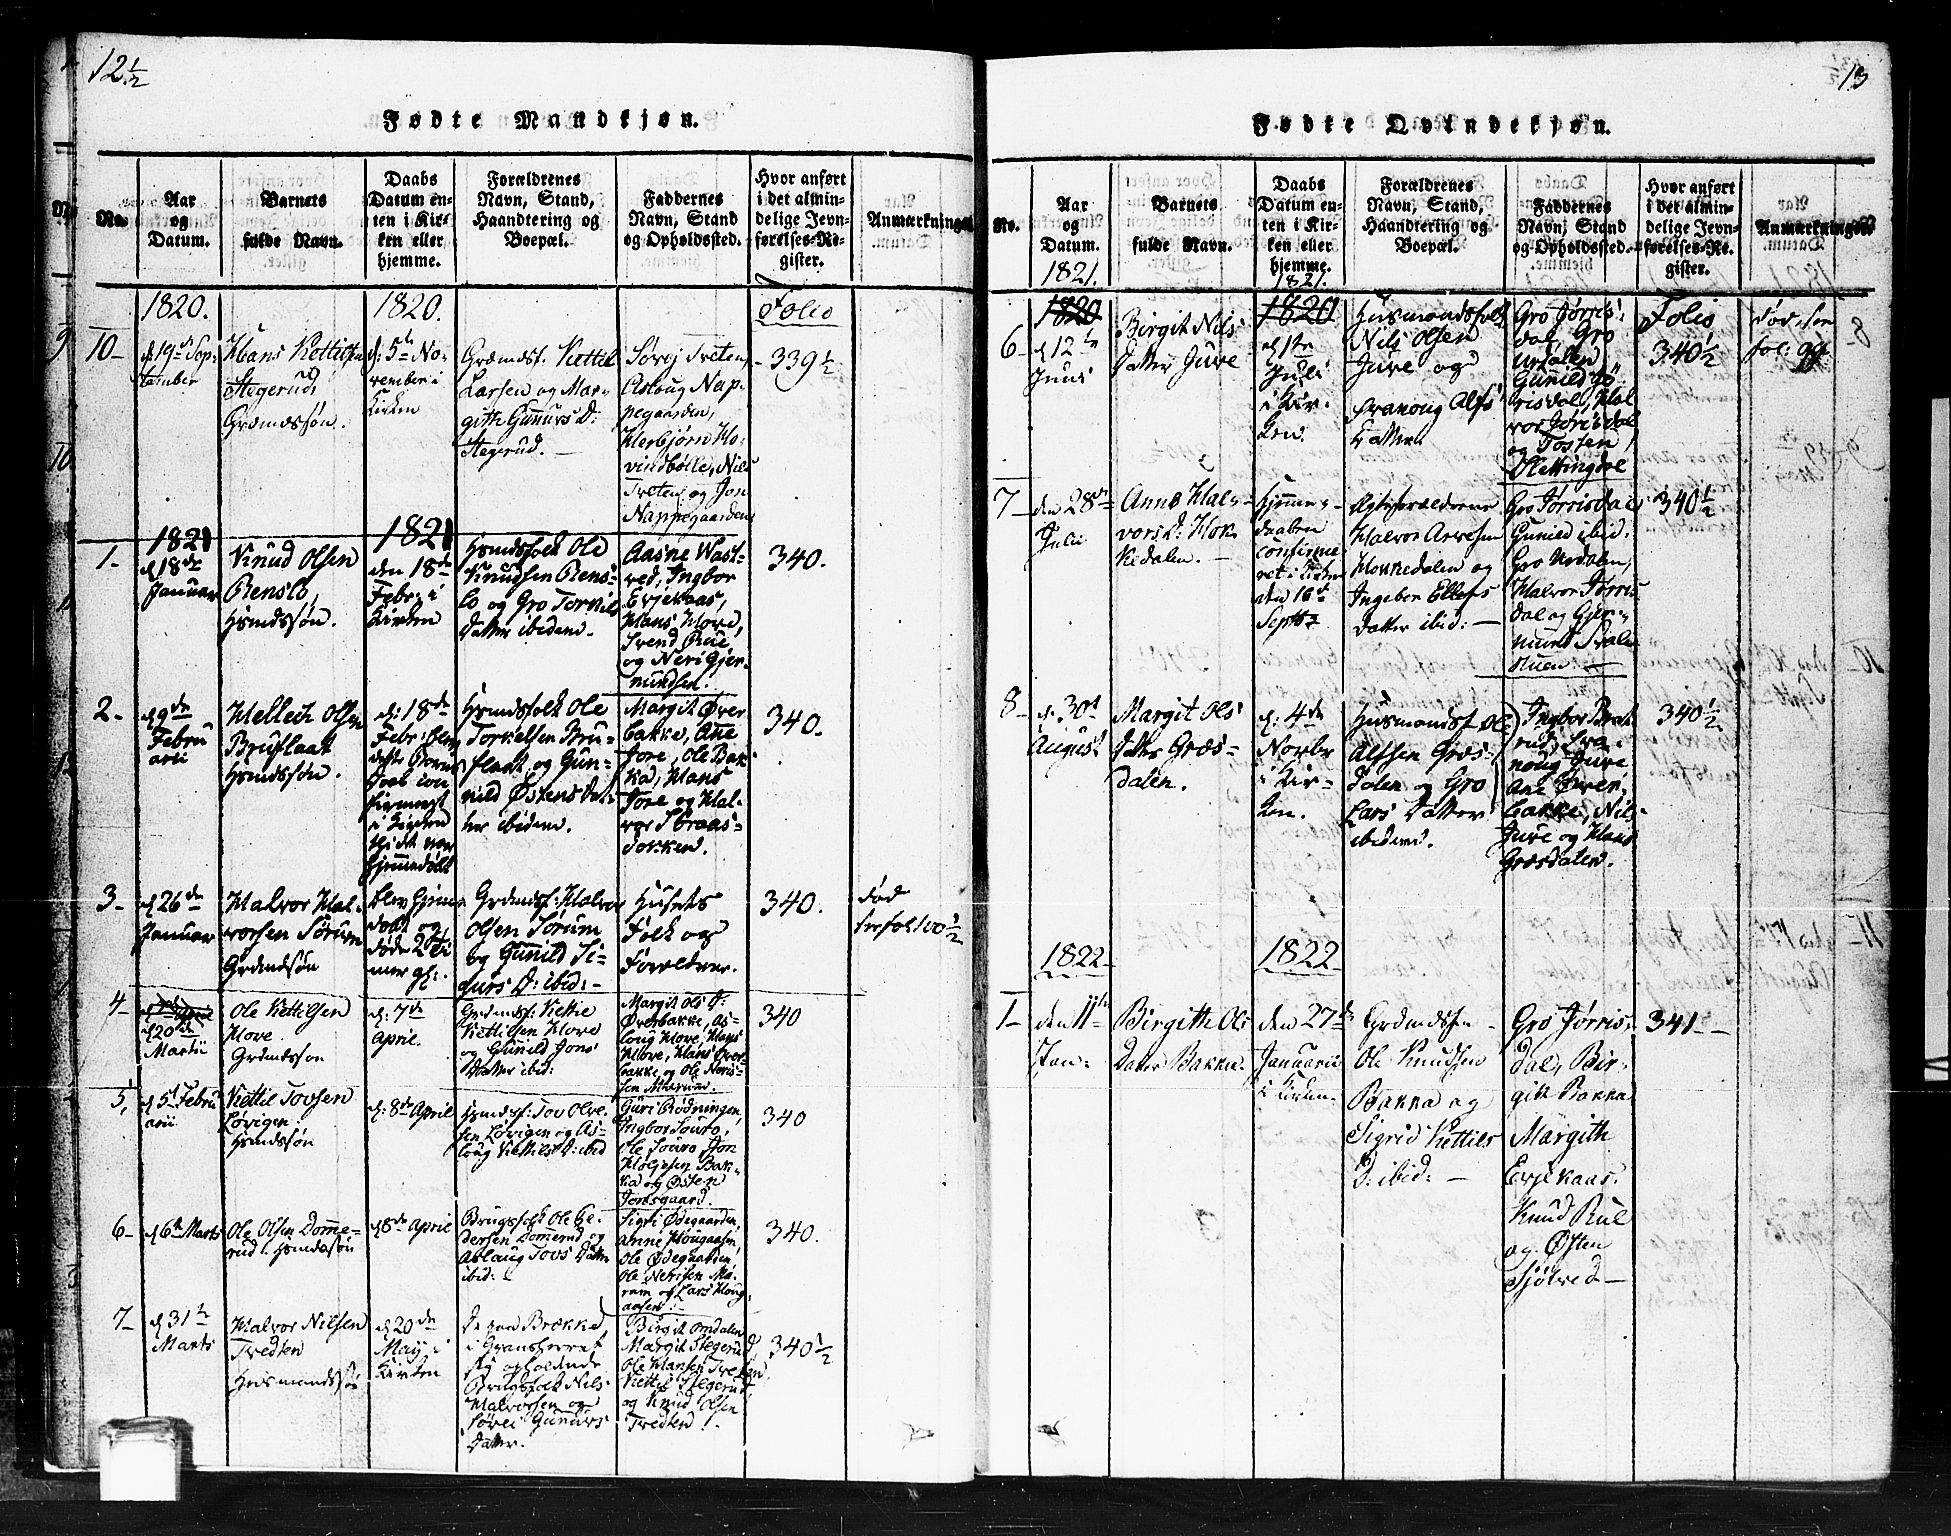 12½
Fødte Mandkjøn.
No.
Aar
og
Datum.
Barnets
fulde Navn.
Daabs
Datum en-
ten i Kir-
ken eller
hjemme.
Forældrenes
Navn, Stand,
Haandtering og
Boepæl.
Faddernes
Navn, Stand
og Opholdssted.
Hvor anført
i det almin-
delige Jevn-
førelses-Re-
gister.
Anmærkninger
1820.
1820.
Folio
10-
d 19de Sep-
tember
Hans Kettilsen
Stegerud,
Grdmdssøn.
d 5te No-
vember i
Kirken
Grdmdsf. Kettil
Larsen og Mar-
gitte Gunnurs D:
Stegerud.
Sørej Treten,
Aslaug Nap-
pegaarden,
Herbjørn Ho-
vindbølle, Nils
Treten og Jon
Nappegaarden
339½
1821
1821
1.
d 18de
Januar
Knud Olsen
Renslo,
Hsmdssøn.
den 18de
Febr: i
Kirken
Hsmdsfolk Ole
Knudsen Rens-
lo og Gro Torkils
Datter ibidem.
Aasne Wast-
ved, Ingbor
Evjekaas,
Hans Hove,
Svend Rue
og Neri Gjer-
mundsen.
340.
2.
d 9de
Febru
arii
Hellech Olsen
Bruflaat
Hsmdssøn.
d: 18de
Febr: blev
dette Barns
Daab con
firmeret
i Kirken
hjemmedøbt
Hsmdsfolk Ole
Torkelsen Bru-
flaat og Gun-
nild Østens Dat-
ter ibidem.
Margit Øver
bakke, Ane
Jore, Ole Bak-
ka, Hans
Jore og Hal-
vor Straas-
dokken.
340.
3-
d 26de
Januar
Halvor Hal-
vorsen Sørum
Grdmdssøn
blev hjemme
døbt og
døde 2 Ti
mer gl:.
Grdmdsf: Halvor
Olsen Sørum
og Gunild Si-
gurs D: ibid:-
Husets
Folk og
Forældrer.
340.
død
see fol 100½
4-
d 20de
Martii
Ole Kettilsen
Hove
Grdmdssøn
d: 7de
April.
Grdmdsf: Kettil
Kettilsen Hove
og Gunild Jons
Datter ibid:
Margit Ols D:
Øverbakke, As-
loug Hove, Hans
Hove, Hans Øver
bakke og Ole Noris-
sen
340
5,
d 5t Febru
arii
Kettil Tovsen
Løvigen
Hsmdssøn
d: 8de April
Hsmdsf: Tov Olve-
sen Løvigen og As-
loug Kettils D: ibid
Guri Rødningen,
Ingbor Souro,
Ole Souro, Jon
Holjesen Bak-
ka og Østen
Jonsgaard.
340
6-
d 6te Marts
Ole Olsen Domme-
rud Hsmdssøn
d 8de April
Brugsfolk Ole Pe-
dersen Domerud og
Aslaug Tovs Datter
ibid:
Sigri Ødegaarden,
Anne Hougaasen,
Ole Ødegaarden,
Ole Nerisen Ma-
rum og Lars Houg-
aasen.
340.
7-
d 31te
Marts
Halvor Nilsen
Tredten
Husmandssøn
d 20de
May i
Kirken
De paa Brække
i Gransherret
sig opholdende
Brugsfolk Nils
Halvorsen og
Sørei Gunurs
Datter.
Birgit Omdalen
Margit Stegerud,
Ole Hansen Tredten,
Kettil Stegerud
og Knud Olsen
Tredten.
340½
13
Fødte Qvindekjøn.
No.
Aar
og
Datum.
Barnets
fulde Navn.
Daabs
Datum en-
ten i Kir-
ken eller
hjemme.
Forældrenes
Navn, Stand,
Haandtering og
Boepæl.
Faddernes
Navn, Stand
og Opholdssted.
Hvor anført
i det almin-
delige Jevn-
førelses-Re-
gister.
Anmærkninger
1821.
1821.
1820
1820
6-
d 12te
Junii
Birgit Nils
datter Juve
d 1te
Juli
i Kir-
ken
Husmandsfolk
Nils Olsen
Juve og
Svanoug Alfs
Datter.
Gro Jørris-
dal, Gro
Urdalen
Gunild Jø-
risdal, Hal
vor Jørisdal
og Tosten
Slettingdal
Folio
340½
død, see
fol: 99
7-
den 28de
Juli
Anne Hal-
vors D: Hok-
kedalen.
hjemme-
daaben
confirme-
ret i Kirken
den 16de
Septbr
Ægteforældrene
Halvor Arvesen
Hokkedalen og
Ingebor Ellefs
Datter ibid:
Gro Jørrisdal
Gunild ibid.
Gro Urdalen,
Halvor Jørris
dal og Gjer-
mund Svale-
stuen
340½
8-
d. 30t
August
Margit Ols
datter Græs-
dalen.
d: 4de
Novbr
i Kir-
ken.
Husmandsf Ole
Alfsen Græs-
dalen og Gro
Lars Datter
ibidem.
Ingbor Brat
rud, Sva-
noug Juve
Ane Øver-
bakke, Nils
Juve og Hans
Græsdalen.
340½
1822
1822
1-
den 11te
Jan-
Birgith Ols
Dater Bakka.
den 27de
Januarii
i Kirken
Grdmdsfn
Ole Knudsen
Bakka og
Sigrid Kettils
D: ibid:
Gro Jørris-
dal, Bir-
git Bakka
Margith
Evjekaas.
Knud Rue
og Østen
Sjøtved
341-